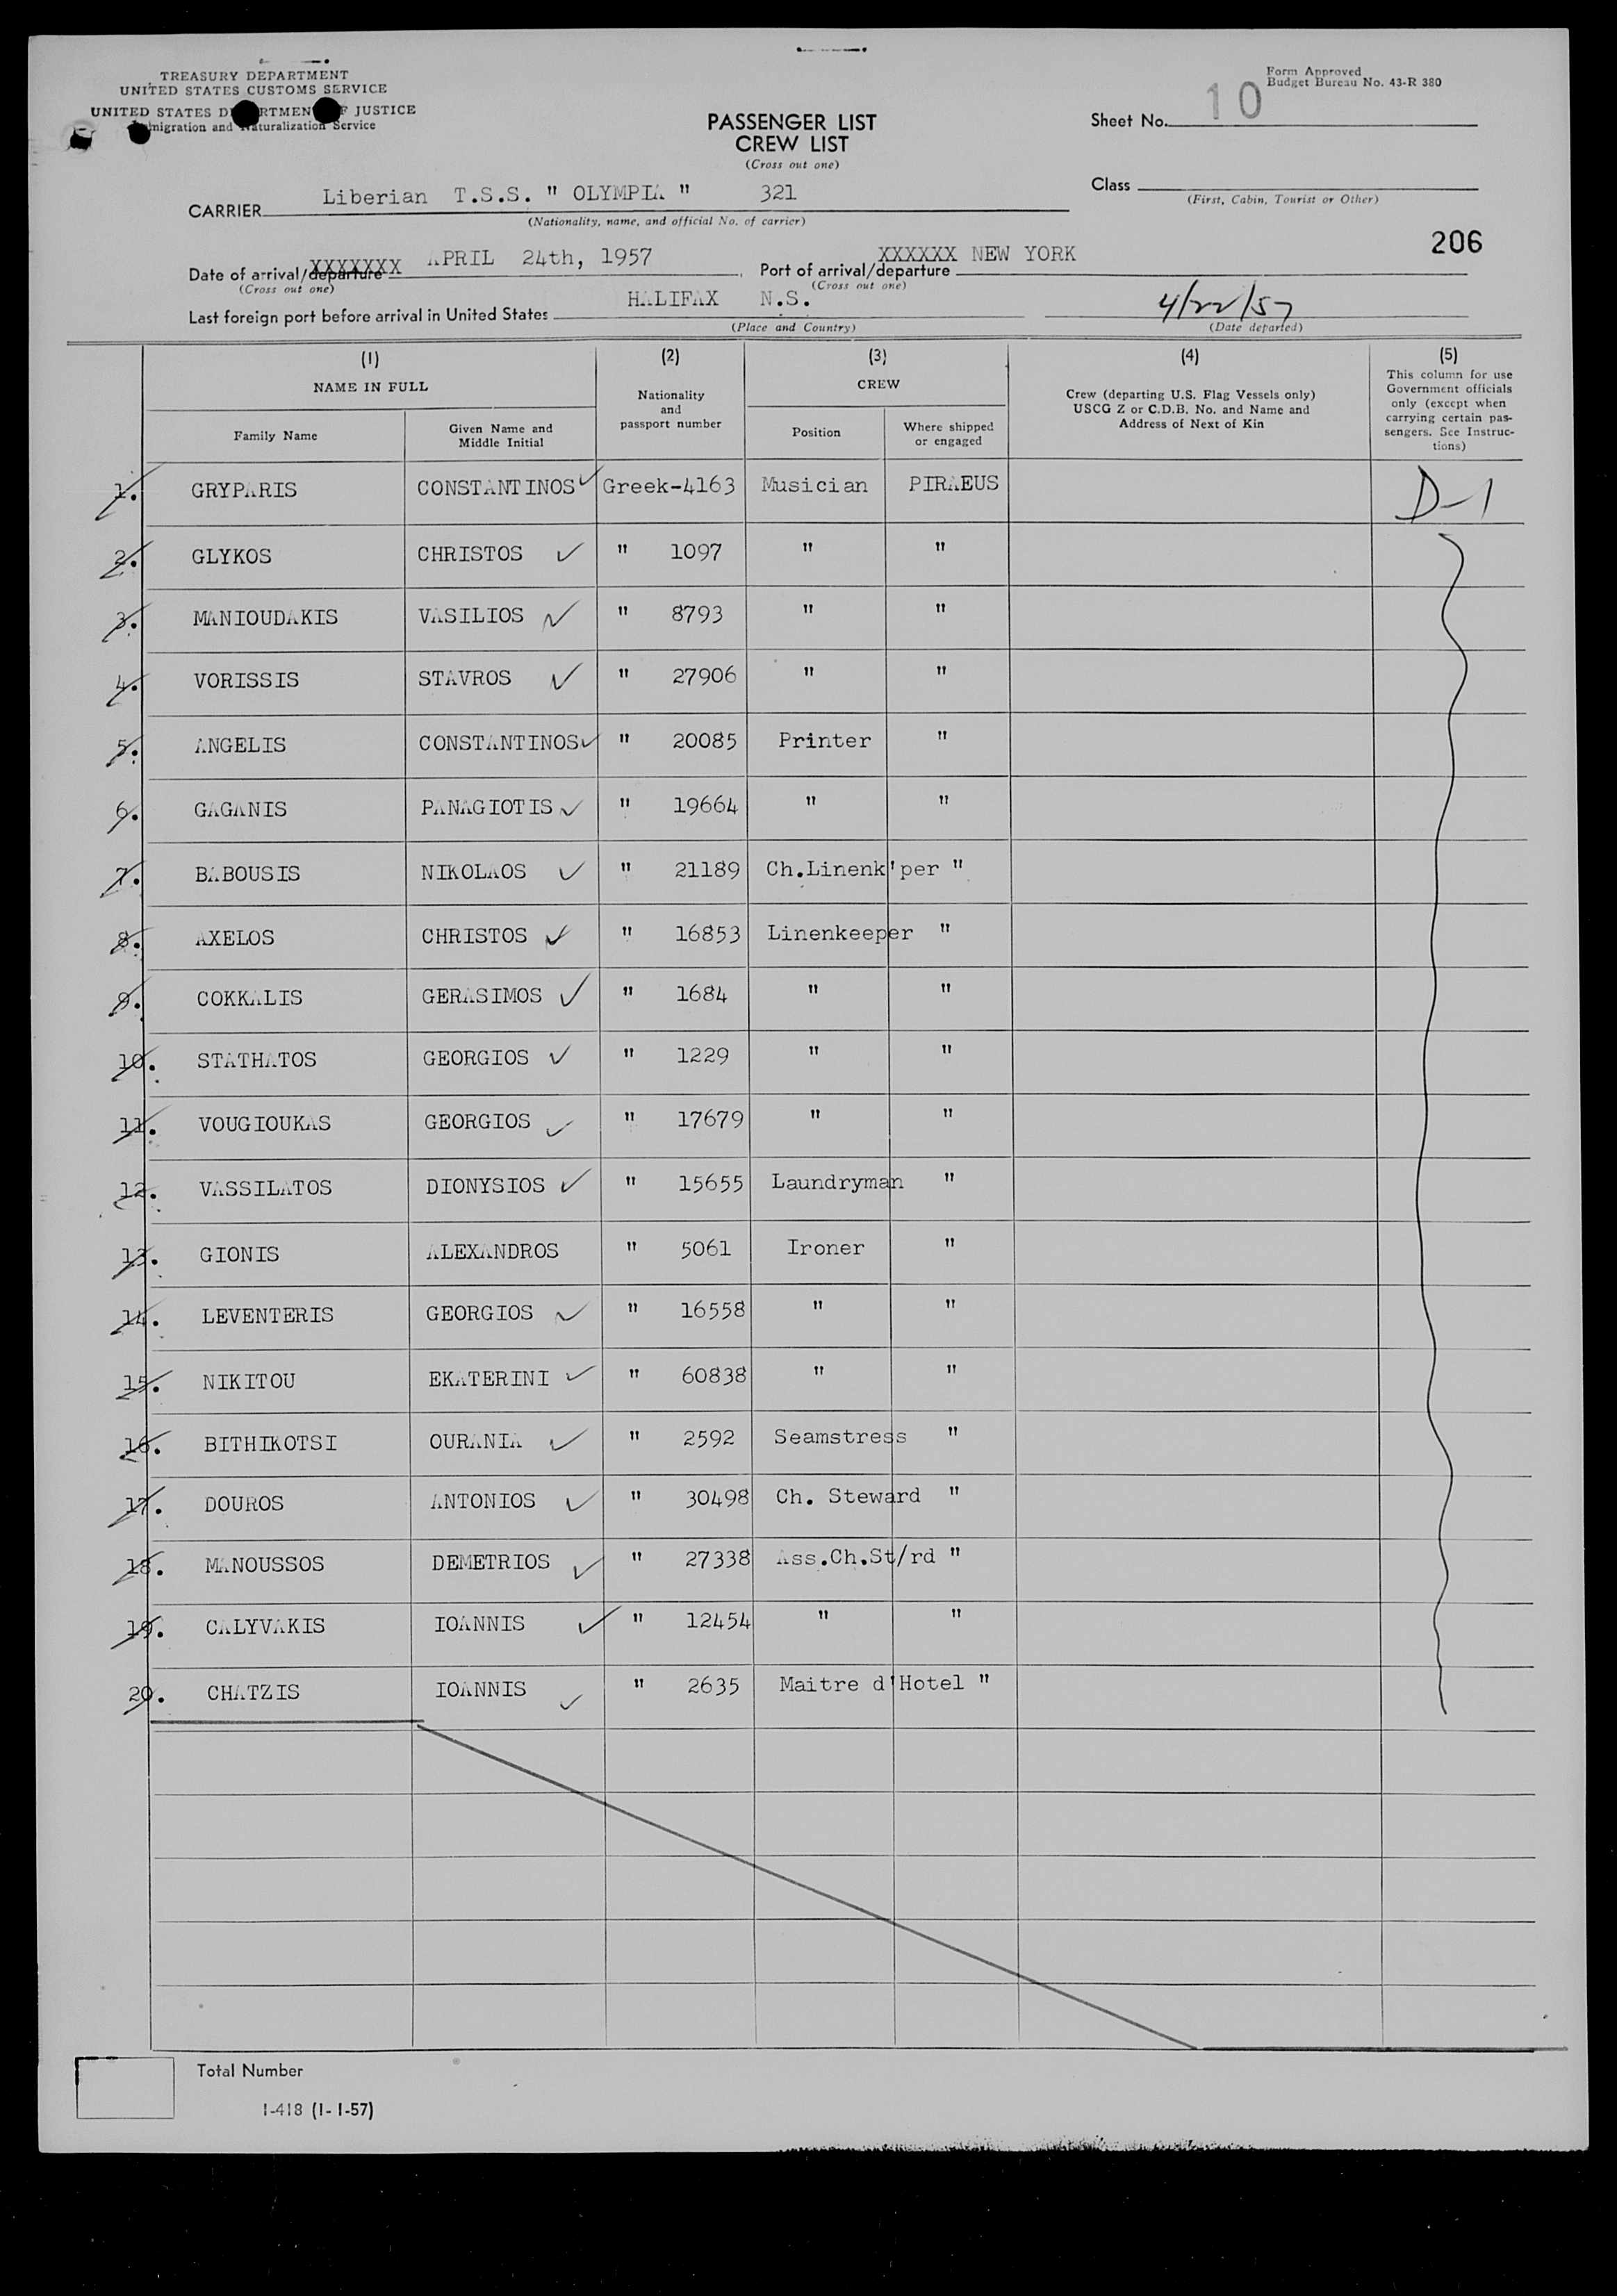 TREASURY DEPARTMENT
UNITED STATES CUSTOMS SERVICE
UNITED STATES DEPARTMENT OF JUSTICE
Immigration and Naturalization Service
Form Approved
Budget Bureau No. 43-R 380
PASSENGER LIST
CREW LIST
(Cross out one)
Sheet No. 10
Class
(First, Cabin, Tourist or Other)
CARRIER Liberian T.S.S. " OLYMPIA " 321
(Nationality, name, and official No. of carrier)
206
Date of arrival/departure XXXXXXX APRIL 24th, 1957 Port of arrival/departure XXXXXX NEW YORK
(Cross out one) (Cross out one)
Last foreign port before arrival in United States HALIFAX N.S. 4/22/57
(Place and Country) (Date departed)
(1) (2) (3) (4) (5)
NAME IN FULL Nationality and passport number CREW Crew (departing U.S. Flag Vessels only) USCG Z or C.D.B. No. and Name and Address of Next of Kin This column for use Government officials only (except when carrying certain passengers. See Instructions)
Family Name Given Name and Middle Initial Position Where shipped or engaged
1. GRYPARIS CONSTANTINOS Greek-4163 Musician PIRAEUS D-1
2. GLYKOS CHRISTOS " 1097 " "
3. MANIOUDAKIS VASILIOS " 8793 " "
4. VORISSIS STAVROS " 27906 " "
5. ANGELIS CONSTANTINOS " 20085 Printer "
6. GAGANIS PANAGIOTIS " 19664 " "
7. BABOUSIS NIKOLAOS " 21189 Ch.Linenk'per "
8. AXELOS CHRISTOS " 16853 Linenkeeper "
9. COKKALIS GERASIMOS " 1684 " "
10. STATHATOS GEORGIOS " 1229 " "
11. VOUGIOUKAS GEORGIOS " 17679 " "
12. VASSILATOS DIONYSIOS " 15655 Laundryman "
13. GIONIS ALEXANDROS " 5061 Ironer "
14. LEVENTERIS GEORGIOS " 16558 " "
15. NIKITOU EKATERINI " 60838 " "
16. BITHIKOTSI OURANIA " 2592 Seamstress "
17. DOUROS ANTONIOS " 30498 Ch. Steward "
18. MANOUSSOS DEMETRIOS " 27338 Ass.Ch.St/rd "
19. CALYVAKIS IOANNIS " 12454 " "
20. CHATZIS IOANNIS " 2635 Maitre d'Hotel "
Total Number
I-418 (1-1-57)